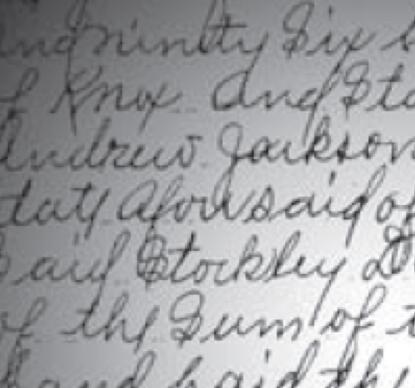 and ninty Six
of Knox and Sta
Andrew Jackson
State Aforesaid of
Said Stockley D
of the Sum of t
hand paid the